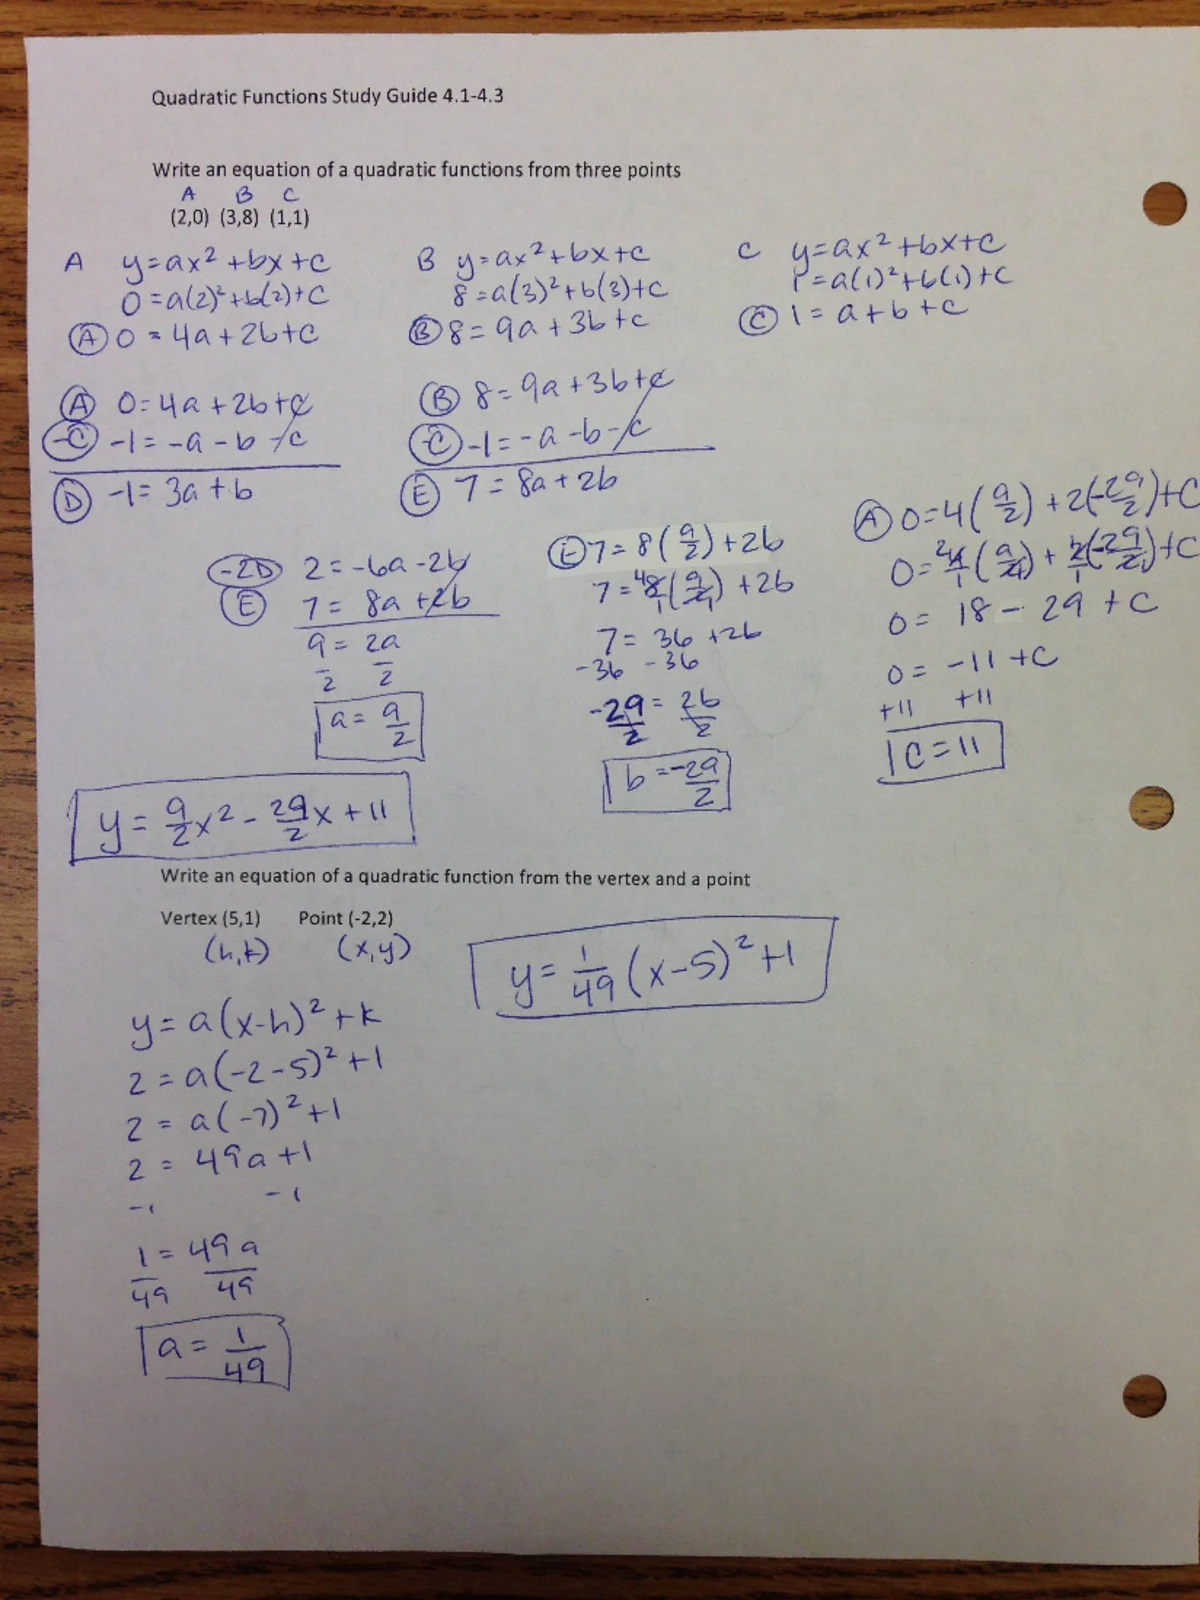 Quadratic Functions Study Guide 4.1-4.3
Write an equation of a quadratic functions from three points
A B C
(2,0) (3,8) (1,1)
A y=ax²+bx+c
0=a(2)²+b(2)+c
Ⓐ 0 = 4a+2b+c
B y=ax²+bx+c
8=a(3)²+b(3)+c
Ⓑ 8=9a+3b+c
C y=ax²+bx+c
1=a(1)²+b(1)+c
Ⓒ 1=a+b+c
Ⓐ 0=4a+2b+c
-C -1=-a-b-c
Ⓓ -1=3a+b
Ⓑ 8=9a+3b+c
-C -1=-a-b-c
Ⓔ 7=8a+2b
-2D 2=-6a-2b
Ⓔ 7=8a+2b
9/2 = 2a/2
a=9/2
Ⓔ 7=8(9/2)+2b
7=⁴8/1(9/2₁)+2b
7=36+2b
-36 -36
-29/2=2b/2
b=-29/2
Ⓐ 0=4(9/2)+2(-29/2)+C
0=²4/1(9/2₁)+2/1(-29/2₁)+C
0=18-29+C
0=-11+C
+11 +11
C=11
y=9/2x²-29/2x+11
Write an equation of a quadratic function from the vertex and a point
Vertex (5,1) Point (-2,2)
(h,k) (x,y)
y=a(x-h)²+k
2=a(-2-5)²+1
2=a(-7)²+1
2=49a+1
-1 -1
1/49=49a/49
a=1/49
y=1/49(x-5)²+1